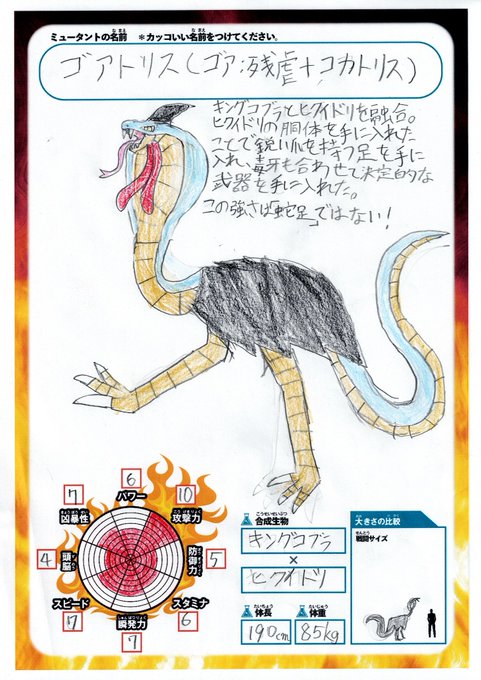 ミュータントの名前 *カッコいい名前をつけてください。
ゴアトリス(ゴア:残虐+コカトリス)
キングコブラとヒクイドリを融合。
ヒクイドリの胴体を手に入れた
ことで鋭い爪を持つ足を手に
入れ、毒牙も合わせて決定的な
武器を手に入れた。
この強さは「蛇足」ではない!
パワー 6
攻撃力 10
防御力 5
スタミナ 6
瞬発力 7
スピード 7
頭脳 4
凶暴性 7
合成生物
キングコブラ
×
ヒクイドリ
体長
190cm
体重
85kg
大きさの比較
戦闘サイズ